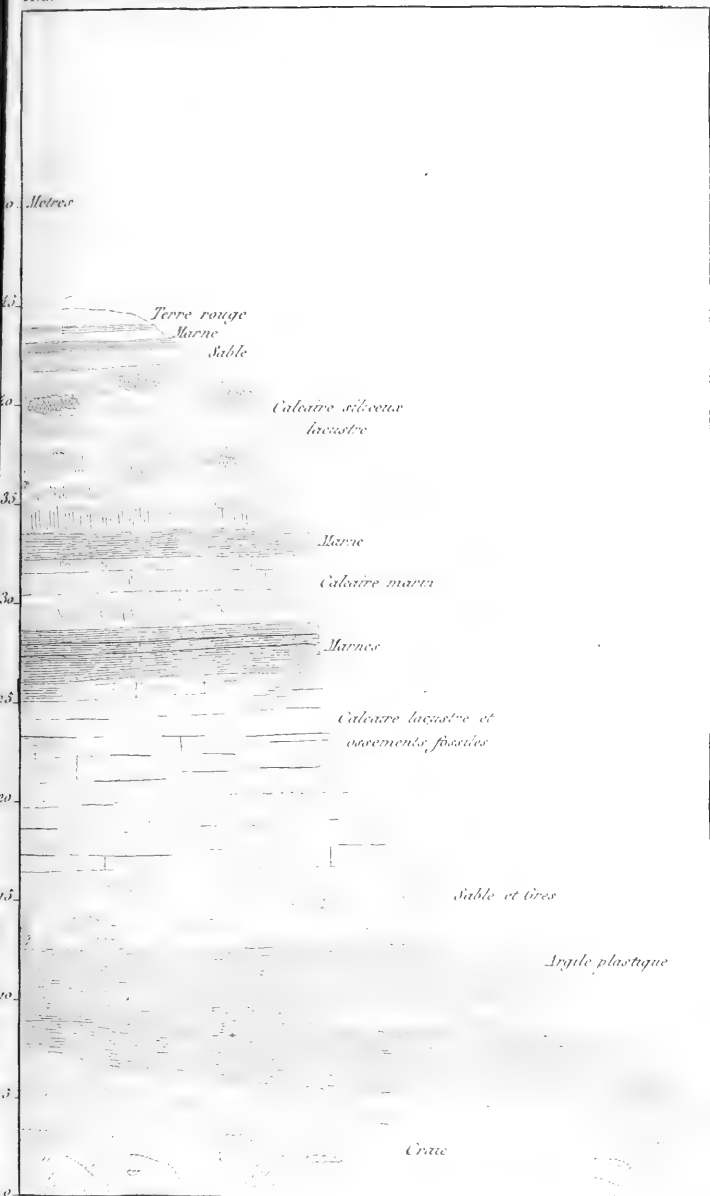 Metres
45
Terre rouge
Marne
Sable
40
Calcaire siliceux
lacustre
35
Marne
Calcaire marin
30
Marnes
25
Calcaire lacustre et
ossements fossiles
20
15
Sable et Gres
Argile plastique
10
5
Craie
0